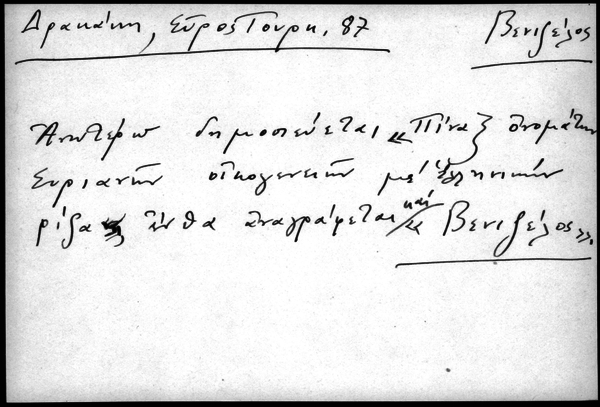 Δρακάκη, Σῦρος Τουρκ. 87 Βενιζέλος
Ἀνωτέρω δημοσιεύεται, «Πίναξ ὀνομάτων
Συριανῶν οἰκογενειῶν μέ ἑλληνικήν
ρίζαν ἔνθα ἀναγράφεται καί Βενιζέλος».